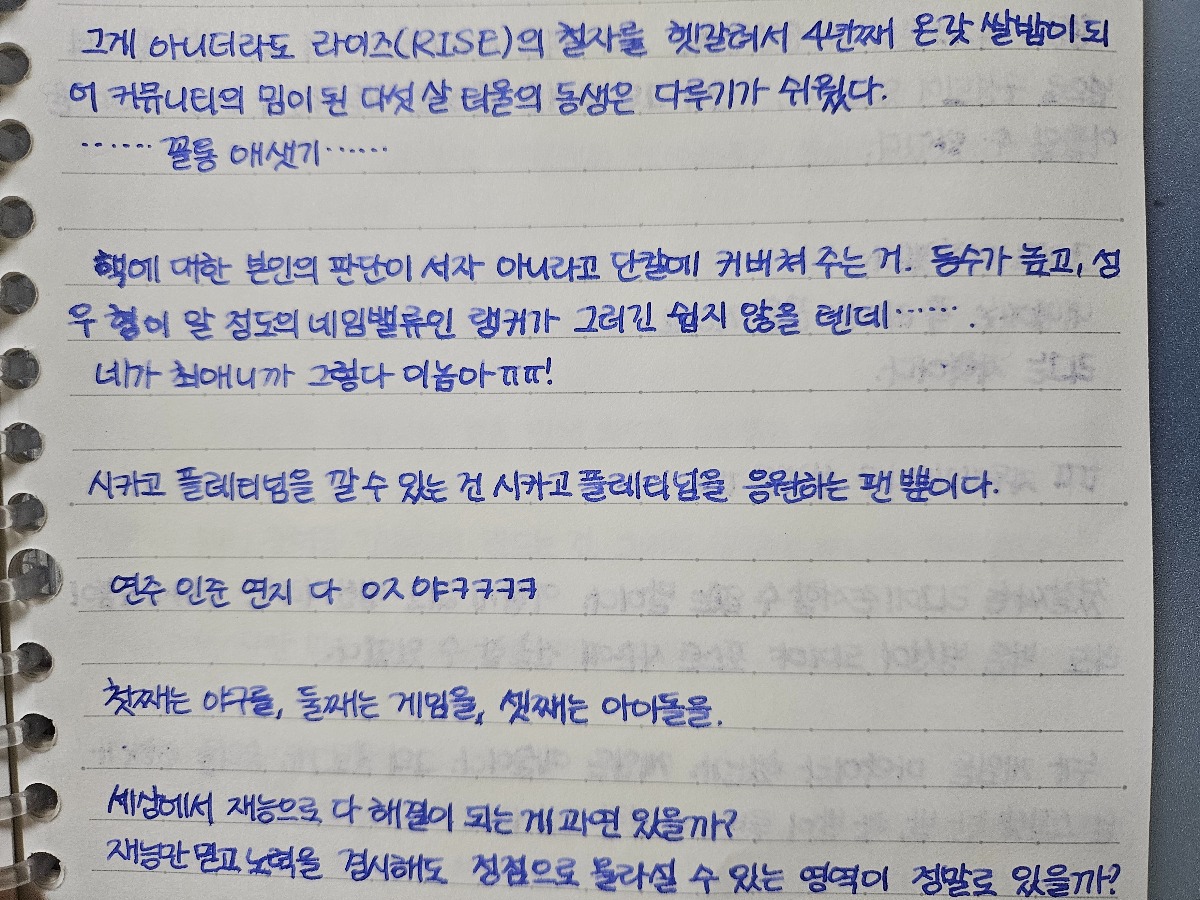 그게 아니더라도 라이즈(RISE)의 철자를 헷갈려서 4년째 온갖 쌀밥이 되
어 커뮤니티의 밈이 된 다섯 살 터울의 동생은 다루기가 쉬웠다.
…… 꼴통 애샛기 ……
핵에 대한 본인의 판단이 서자 아니라고 단칼에 커버쳐 주는 거. 등수가 높고, 성
우 형이 알 정도의 네임밸류인 랭커가 그러긴 쉽지 않을 텐데…….
네가 최애니까 그렇다 이놈아ㅠㅠ!
시카고 플레티넘을 깔 수 있는 건 시카고 플레티넘을 응원하는 팬 뿐이다.
연주 인준 연지 다 ㅇㅈ야ㅋㅋㅋㅋ
첫째는 야구를, 둘째는 게임을, 셋째는 아이돌을.
세상에서 재능으로 다 해결이 되는 게 과연 있을까?
재능만 믿고 노력을 경시해도 정점으로 올라설 수 있는 영역이 정말로 있을까?